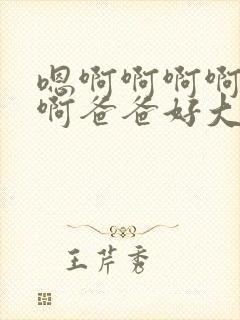 嗯啊啊啊啊
啊爸爸好大
王芹秀